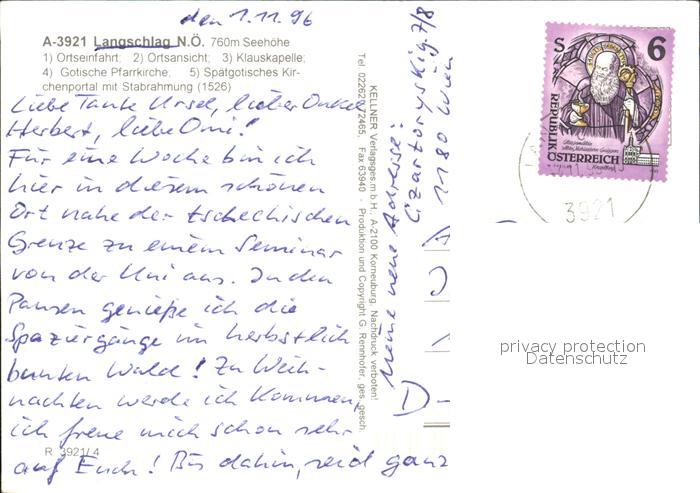 den 1.11.96
A-3921 Langschlag N.Ö. 760m Seehöhe
1) Ortseinfahrt; 2) Ortsansicht; 3) Klauskapelle;
4) Gotische Pfarrkirche; 5) Spätgotisches Kir-
chenportal mit Stabrahmung (1526)
Liebe Tante Ursel, lieber Onkel
Herbert, liebe Omi!
Für eine Woche bin ich
hier in diesem schönen
Ort nahe der tschechischen
Grenze zu einem Seminar
von der Uni aus. In den
Pausen genieße ich die
Spaziergänge im herbstlich
bunten Wald! Zu Weih-
nachten werde ich kommen,
ich freue mich schon sehr
auf Euch! Bis dahin, seid ganz
R 3921/4
KELLNER Verlagsges.m.b.H., A-2100 Korneuburg. Nachdruck verboten!
Tel. 02262/2465, Fax 63940 - Produktion und Copyright G. Rennhofer, ges. gesch.
Meine neue Adresse:
Czartoryskig. 7/8
1180 Wien
D-
S 6
REPUBLIK
ÖSTERREICH
3921
privacy protection
Datenschutz